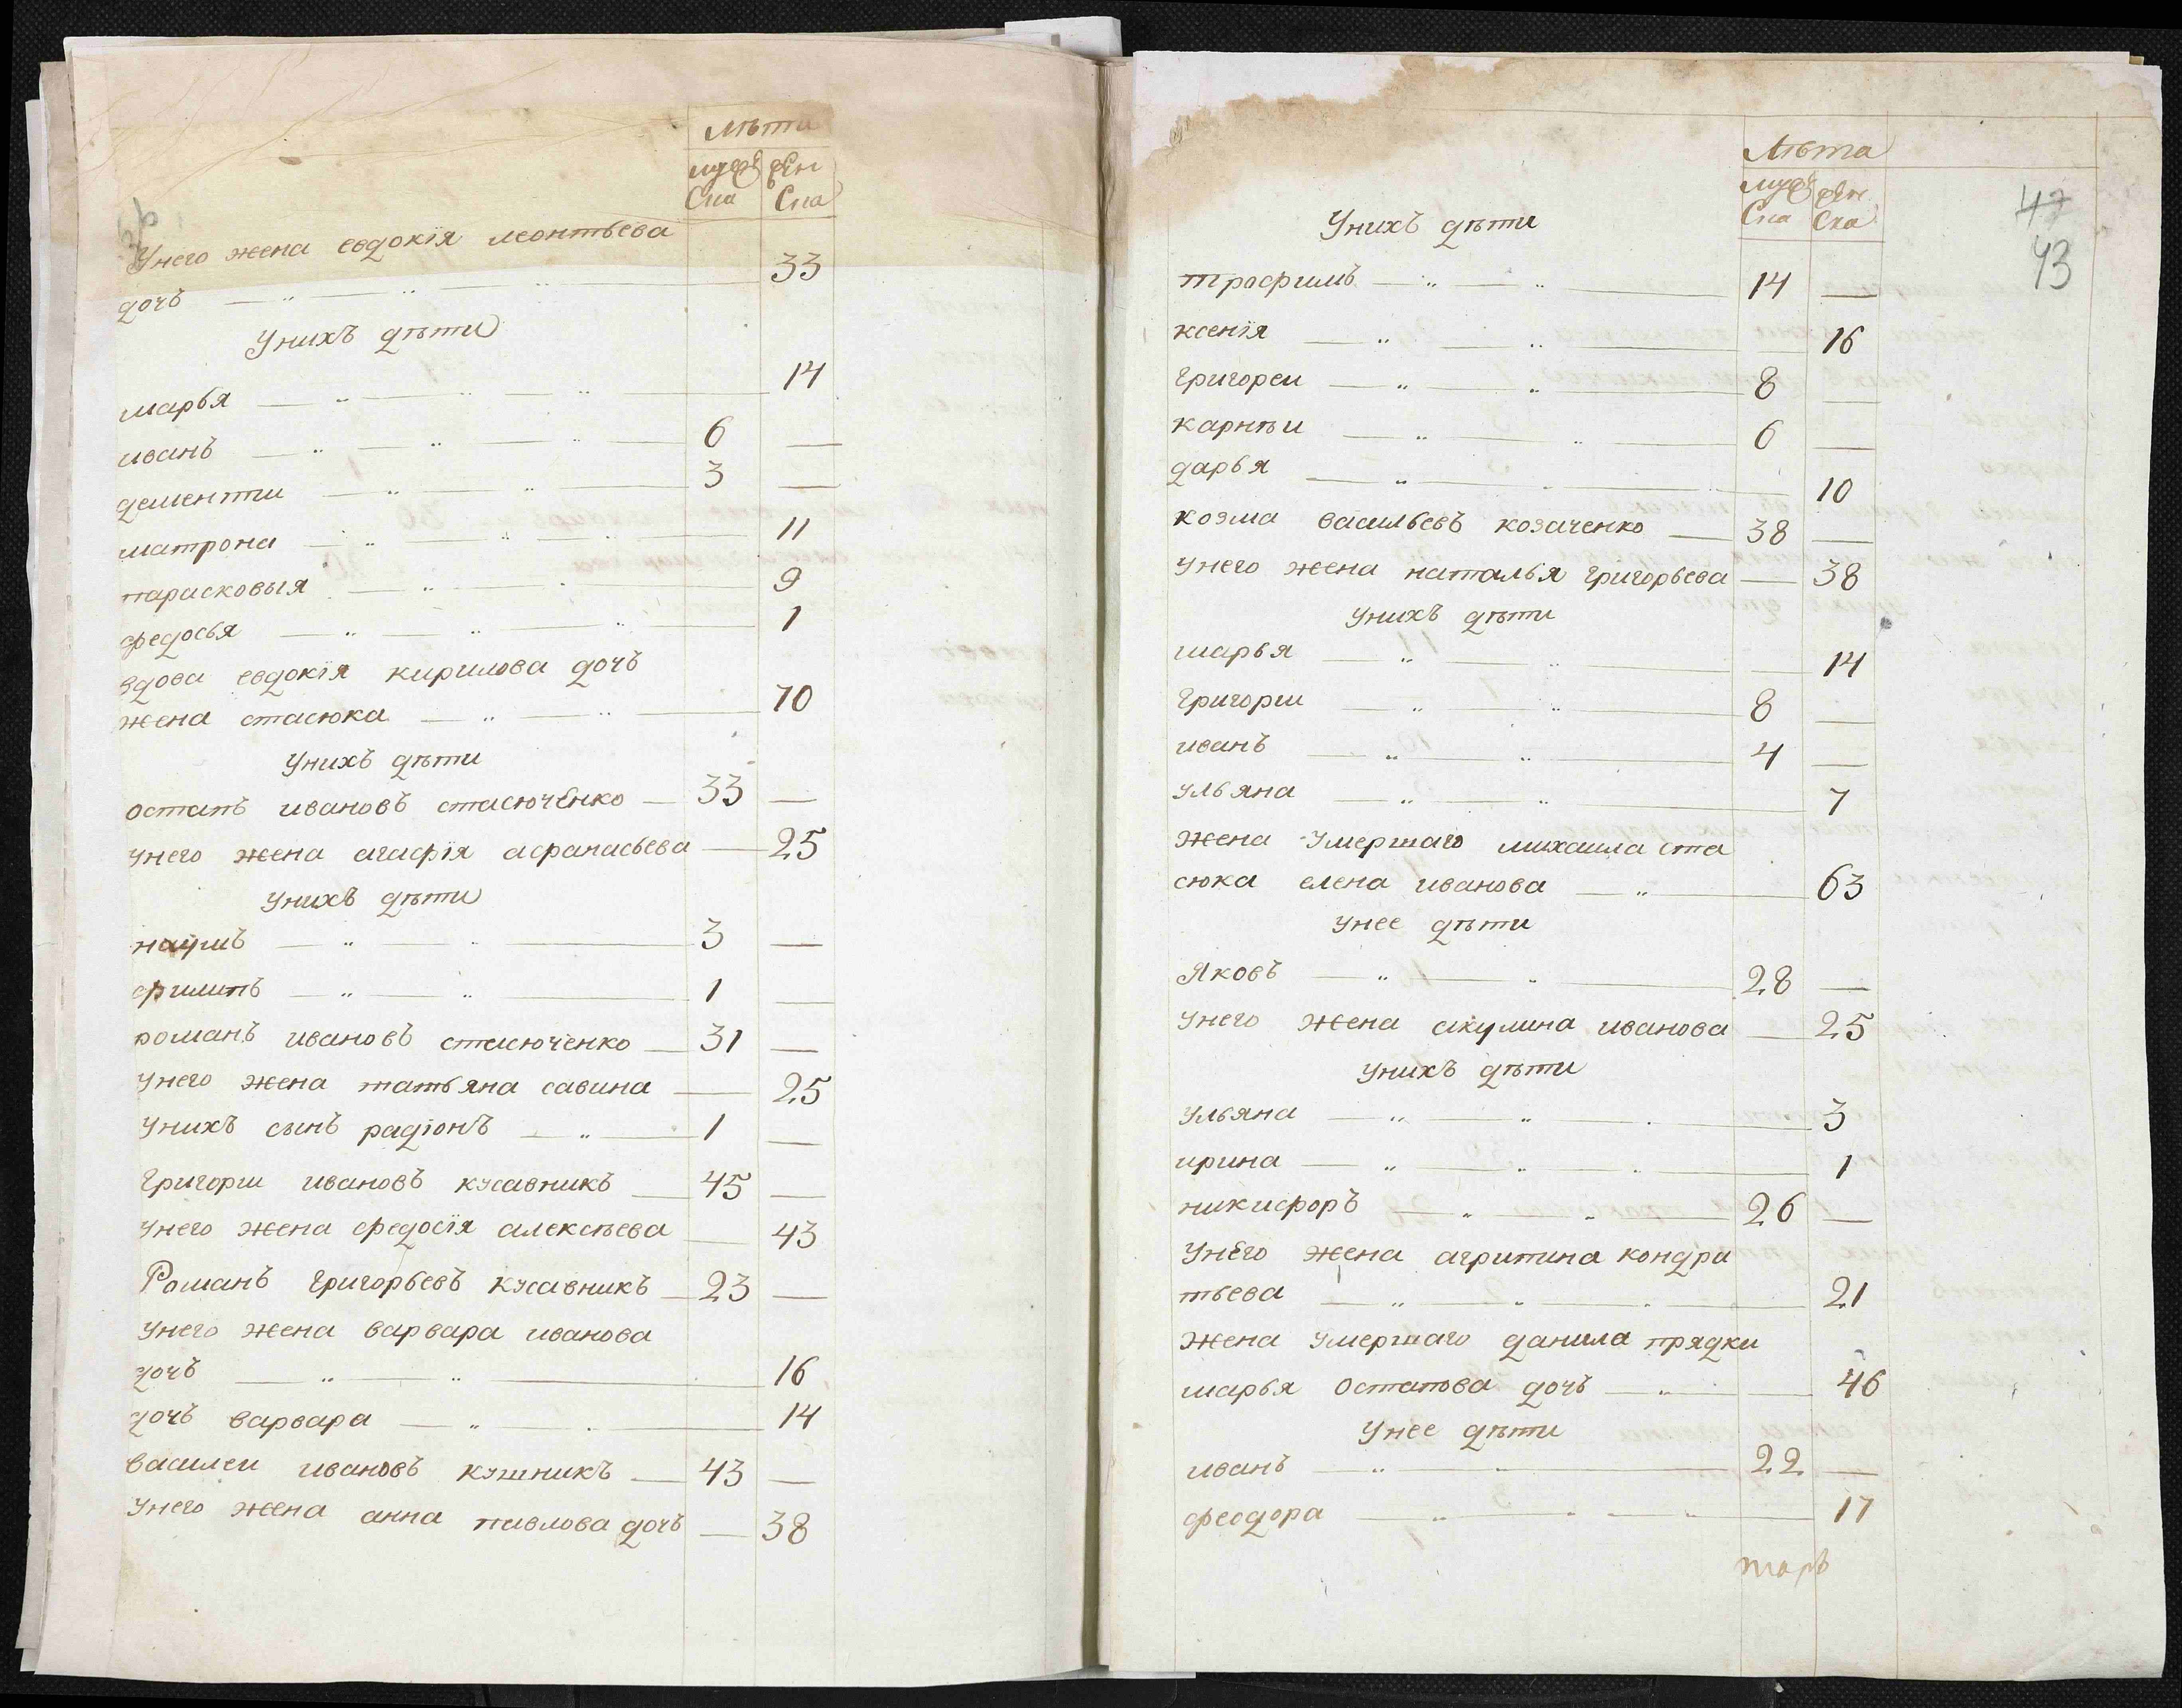 Лѣта
муж жен
ска ска
Унего жена евдокія леонтьева
дочь 33
Унихъ дѣти
марья 14
иванъ 6 —
дементи 3 —
матрона 11
парасковыя 9
федосья 1
вдова евдокія кирилова дочь
жена стасюка 70
Унихъ дѣти
остапъ ивановъ стасюченко — 33 —
унего жена агафія афанасьева — 25
Унихъ дѣти
наумъ 3 —
филипъ 1 —
романъ ивановъ стасюченко — 31 —
унего жена татьяна савина — 25
Унихъ сынъ радіонъ 1 —
Григори ивановъ кусавникъ — 45 —
унего жена федосія алексѣева — 43
Романъ григорьевъ кусавникъ — 23 —
унего жена варвара иванова
дочь 16
дочь варвара 14
василеи ивановъ кушникъ — 43 —
унего жена анна павлова дочь — 38
47
43
Лѣта
муж жен
ска ска
Унихъ дѣти
трофимъ 14 —
ксенія 16
григореи 8 —
карнѣи 6 —
дарья 10
козма васильевъ козаченко — 38 —
унего жена наталья григорьева — 38
унихъ дѣти
марья 14
григори 8 —
иванъ 4 —
ульяна 7
жена умершаго михаила ста
сюка елена иванова 63
унее дѣти
яковъ 28 —
унего жена акулина иванова — 25
унихъ дѣти
ульяна 3
ирина 1
никифоръ 26 —
унего жена агрипина кондра
тьева 21
жена умершаго данила прядки
марья остапова дочь 46
Унее дѣти
иванъ 22 —
феодора 17
марь